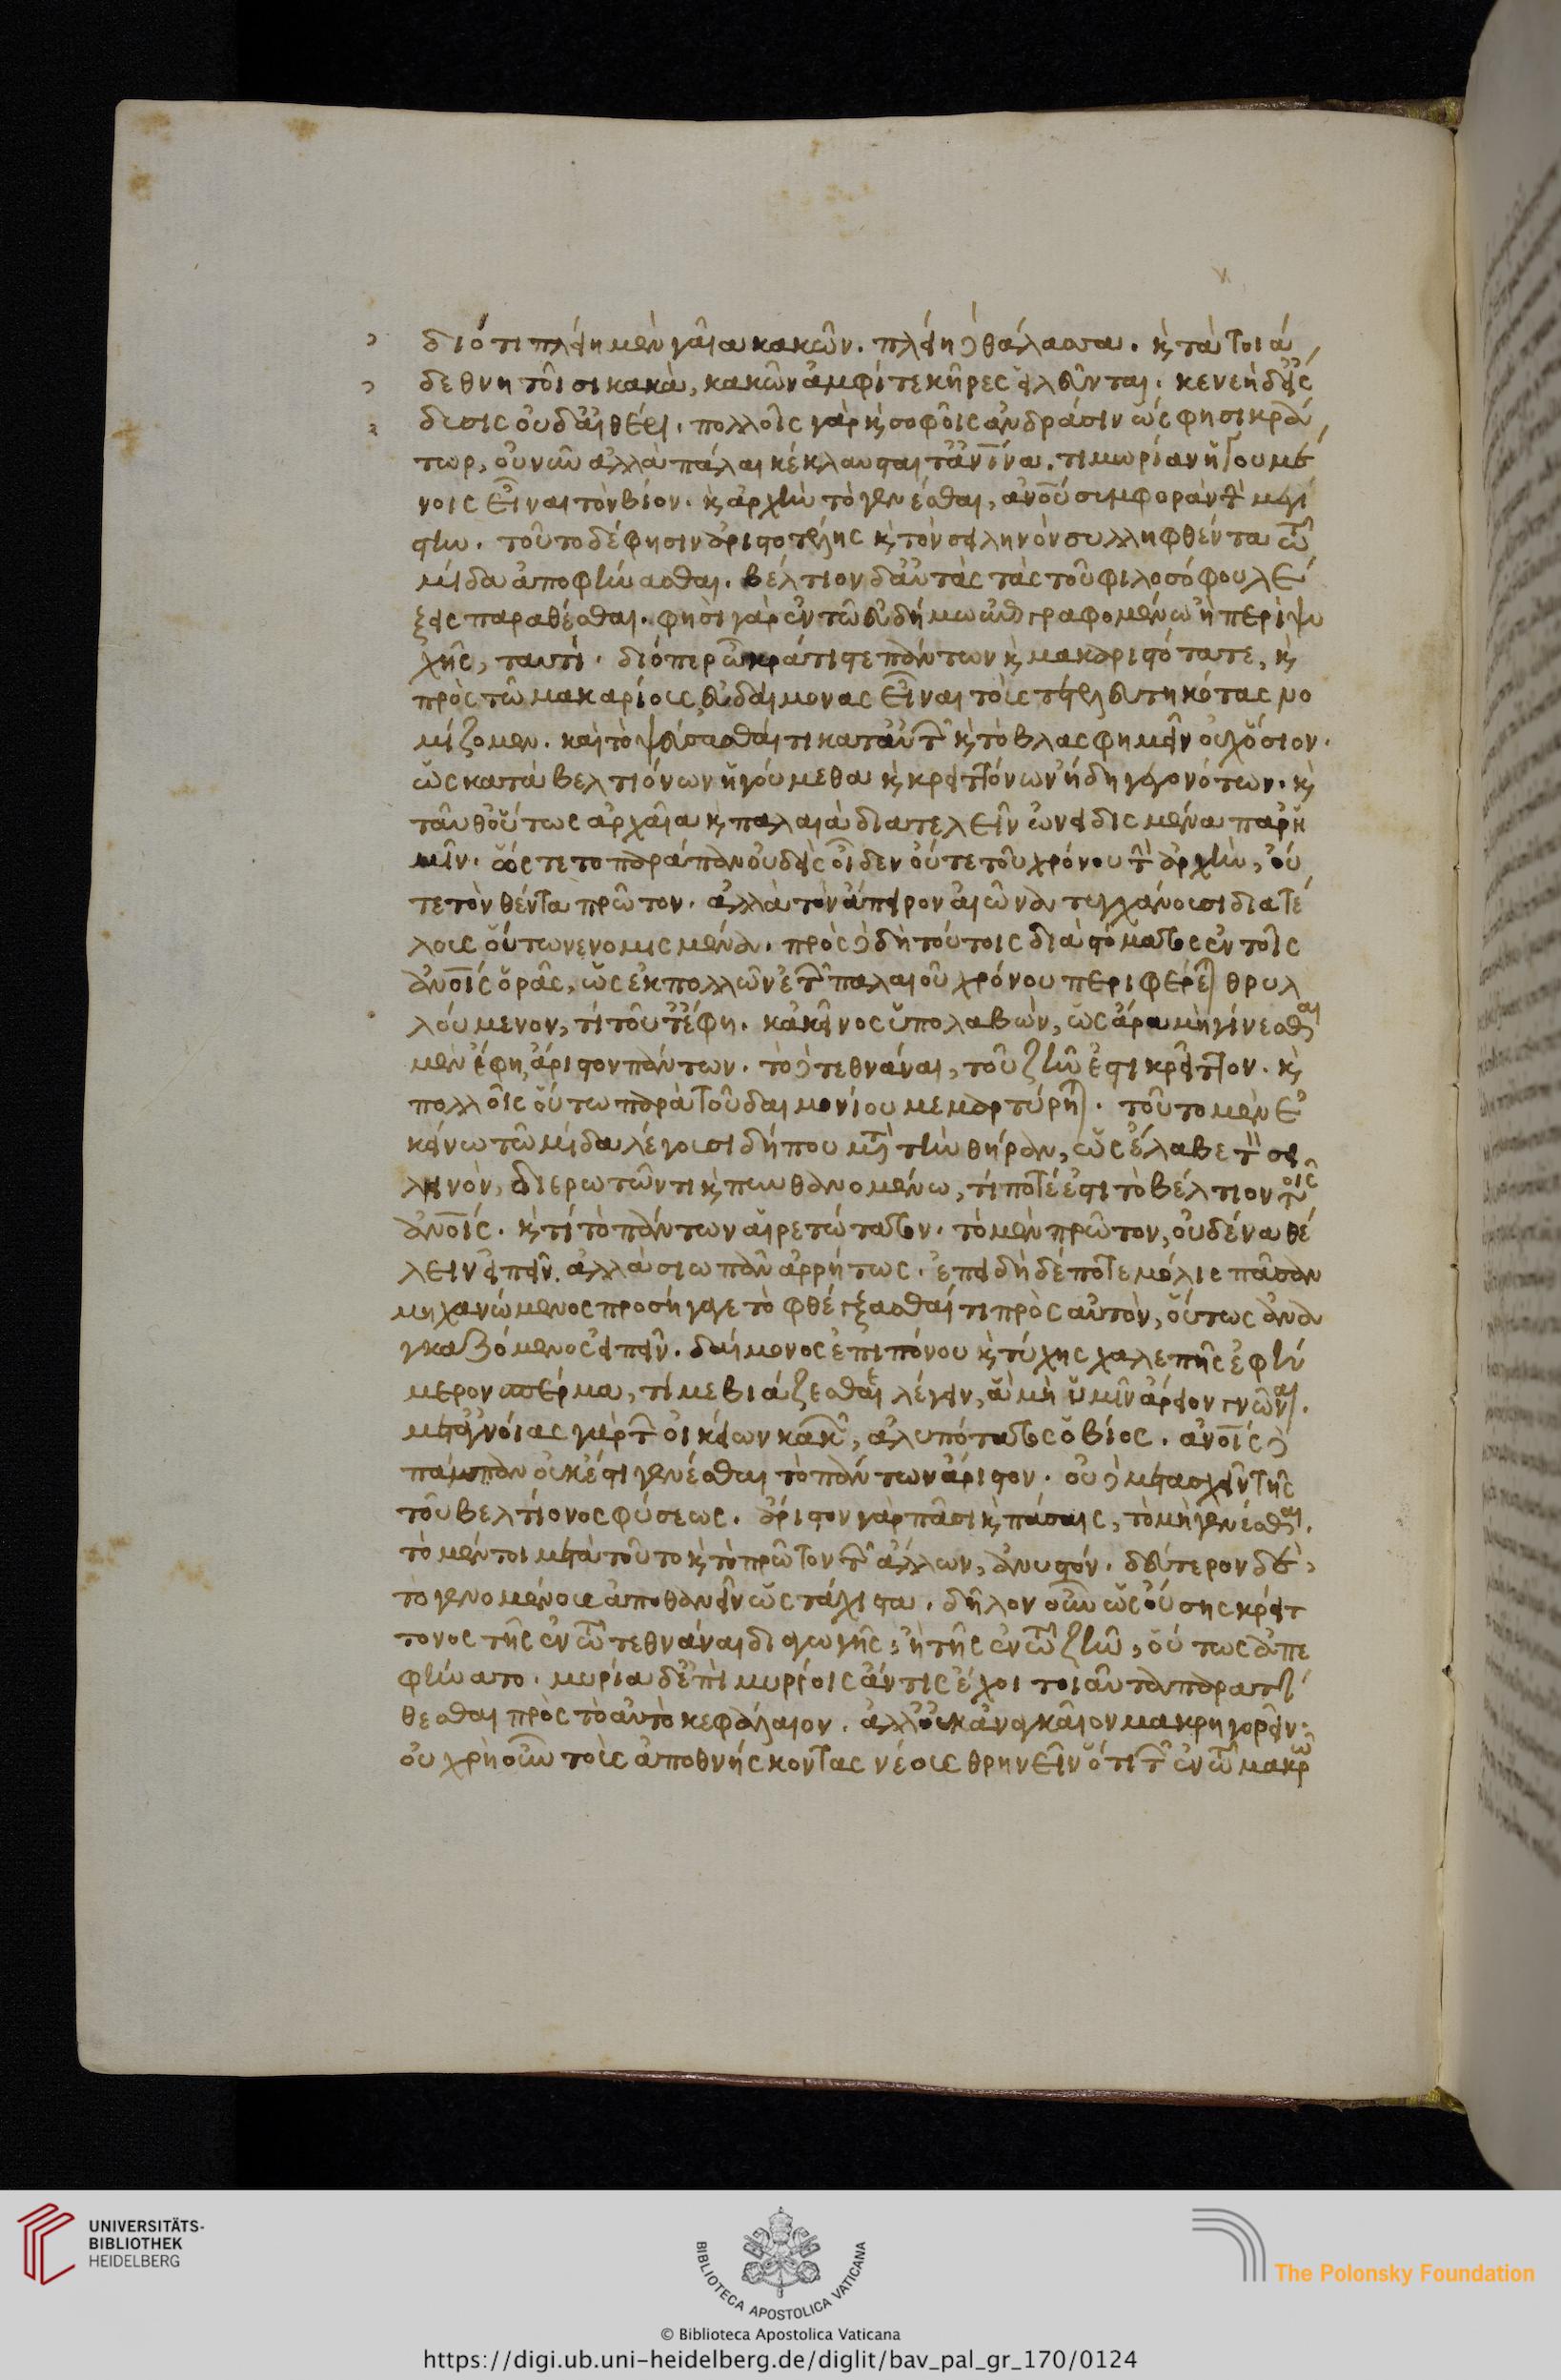 διότι πλείη μὲν γαῖα κακῶν. πλείη δὲ θάλασσα. καὶ τὰ τοιά
δε θνητοῖσι κακὰ, κακῶν ἀμφί τε κῆρες εἰλεῦνται. κενεὴ δ' εἴς
δυσις οὐδ' αἰθέρι. πολλοῖς γὰρ καὶ σοφοῖς ἀνδράσιν ὥς φησι κράν
τωρ, οὐ νῦν ἀλλὰ πάλαι κέκλαυσται τἀνθρώπινα. τιμωρίαν ἡγουμέ
νοις εἶναι τὸν βίον. καὶ ἀρχὴν τὸ γενέσθαι, ἄνθρωπον συμφορὰν τὴν μεγί
στην. τοῦτο δέ φησιν ἀριστοτέλης καὶ τὸν σειληνὸν συλληφθέντα τῷ
μίδα ἀποφήνασθαι. βέλτιον δ' αὐτὰς τὰς τοῦ φιλοσόφου λέ
ξεις παραθέσθαι. φησὶ γὰρ ἐν τῷ εὐδήμω ἐπιγραφομένω ἢ περὶ ψυ
χῆς, ταυτί. διόπερ ὦ κράτιστε πάντων καὶ μακαριστότατε, καὶ
πρὸς τῷ μακαρίους, εὐδαίμονας εἶναι τοὺς τετελευτηκότας νο
μίζομεν. καὶ τὸ ψεύσασθαί τι κατ' αὐτῶν καὶ τὸ βλασφημεῖν οὐχ ὅσιον.
ὡς κατὰ βελτιόνων ἡγούμεθα καὶ κρειττόνων ἤδη γεγονότων. καὶ
ταῦθ' οὕτως ἀρχαῖα καὶ παλαιὰ διατελεῖ νενομισμένα παρ' ἡ
μῖν. ὥστε τὸ παράπαν οὐδεὶς οἶδεν οὔτε τοῦ χρόνου τὴν ἀρχὴν, οὔ
τε τὸν θέντα πρῶτον. ἀλλὰ τὸν ἄπειρον αἰῶνα τυγχάνουσι διατέ
λους οὕτω νενομισμένα. πρὸς δὲ δὴ τούτοις διὰ στόματος ἐν τοῖς
ἀνθρώποις ὁρᾷς, ὡς ἐκ πολλῶν ἐτῶν παλαιοῦ χρόνου περιφέρεται θρυλ
λούμενον, τί τοῦτ' ἔφη. κἀκεῖνος ὑπολαβὼν, ὡς ἄρα μὴ γίνεσθαι
μὲν ἔφη, ἄριστον πάντων. τὸ δὲ τεθνάναι, τοῦ ζῆν ἐστι κρεῖττον. καὶ
πολλοῖς οὕτω παρὰ τοῦ δαιμονίου μεμαρτύρηται. τοῦτο μὲν ἐ
κείνω τῷ μίδα λέγουσι δήπου μετὰ τὴν θήραν, ὡς ἔλαβε τὸν σει
ληνὸν, διερωτῶντι καὶ πυνθανομένω, τί ποτέ ἐστι τὸ βέλτιον τοῖς
ἀνθρώποις. καὶ τί τὸ πάντων αἱρετώτατον. τὸ μὲν πρῶτον, οὐδὲν ἐθέ
λειν εἰπεῖν. ἀλλὰ σιωπᾶν ἀρρήτως. ἐπειδὴ δέ ποτε μόλις πᾶσαν
μηχανώμενος προσήγαγε τὸ φθέγξασθαί τι πρὸς αὐτὸν, οὕτως ἀνα
γκαζόμενος εἰπεῖν. δαίμονος ἐπιπόνου καὶ τύχης χαλεπῆς ἐφή
μερον σπέρμα, τί με βιάζεσθε λέγειν, ἃ μὴ ὑμῖν ἄρειον γνῶναι.
μετ' ἀγνοίας γὰρ τῶν οἰκείων κακῶν, ἀλυπότατος ὁ βίος. ἀνθρώποις δὲ
πάμπαν οὐκ ἔστι γενέσθαι τὸ πάντων ἄριστον. οὐδὲ μετασχεῖν τῆς
τοῦ βελτίονος φύσεως. ἄριστον γὰρ πᾶσι καὶ πάσαις, τὸ μὴ γενέσθαι.
τὸ μέντοι μετὰ τοῦτο καὶ τὸ πρῶτον τῶν ἄλλων, ἀνυστόν. δεύτερον δὲ,
τὸ γενομένους ἀποθανεῖν ὡς τάχιστα. δῆλον οὖν ὡς οὔσης κρείτ
τονος τῆς ἐν τῷ τεθνάναι διαγωγῆς, ἢ τῆς ἐν τῷ ζῆν, οὕτως ἀπε
φήνατο. μυρία δ' ἐπὶ μυρίοις ἄν τις ἔχοι τοιαῦτα παρατί
θεσθαι πρὸς τὸ αὐτὸ κεφάλαιον. ἀλλ' οὐκ ἀναγκαῖον μακρηγορεῖν.
οὐ χρὴ οὖν τοὺς ἀποθνήσκοντας νέους θρηνεῖν ὅτι τῶν ἐν τῷ μακρῷ
UNIVERSITÄTS-
BIBLIOTHEK
HEIDELBERG
BIBLIOTECA APOSTOLICA VATICANA
The Polonsky Foundation
© Biblioteca Apostolica Vaticana
https://digi.ub.uni-heidelberg.de/diglit/bav_pal_gr_170/0124